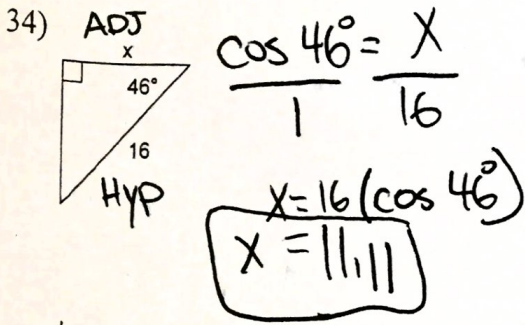 34) ADJ
x
46°
16
HYP
cos 46° = X
1 16
X = 16 (cos 46°)
X = 11.11